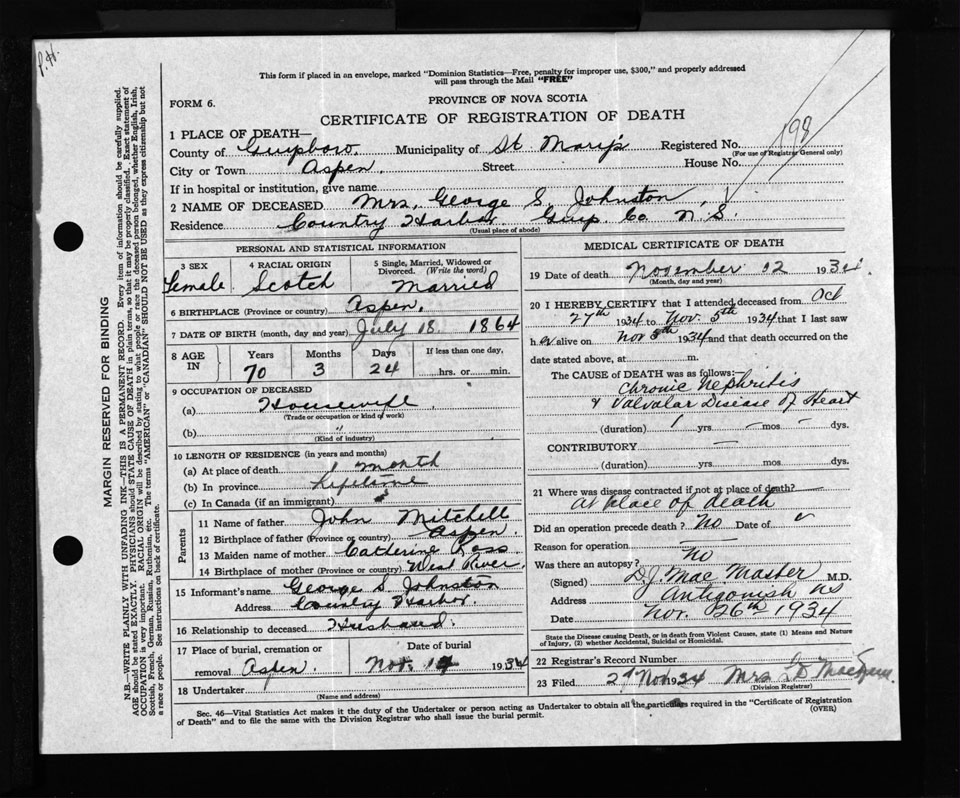 P.H.
This form if placed in an envelope, marked "Dominion Statistics—Free, penalty for improper use, $300," and properly addressed
will pass through the Mail "FREE"
FORM 6.
PROVINCE OF NOVA SCOTIA
CERTIFICATE OF REGISTRATION OF DEATH
198
1 PLACE OF DEATH—
County of Municipality of St Mary's Registered No.
(For use of Registrar General only)
City or Town Aspen. Street House No.
If in hospital or institution, give name
2 NAME OF DECEASED Mrs. George S. Johnston
Residence Country Harbor Guys. Co. N.S.
(Usual place of abode)
PERSONAL AND STATISTICAL INFORMATION
3 SEX Female
4 RACIAL ORIGIN Scotch
5 Single, Married, Widowed or Divorced. (Write the word) Married
6 BIRTHPLACE (Province or country) Aspen.
7 DATE OF BIRTH (month, day and year) July 18 1864
8 AGE IN Years 70 Months 3 Days 24 If less than one day, hrs. or min.
9 OCCUPATION OF DECEASED
(a) Housewife
(Trade or occupation or kind of work)
(b) "
(Kind of industry)
10 LENGTH OF RESIDENCE (in years and months)
(a) At place of death 1 month
(b) In province Lifetime
(c) In Canada (if an immigrant)
Parents
11 Name of father John Mitchell
12 Birthplace of father (Province or country) Aspen
13 Maiden name of mother Catherine Ross
14 Birthplace of mother (Province or country) West River
15 Informant's name George S. Johnston
Address Country Harbor
16 Relationship to deceased Husband.
17 Place of burial, cremation or removal Aspen. Date of burial Nov. 14 1934
18 Undertaker
(Name and address)
MEDICAL CERTIFICATE OF DEATH
19 Date of death November 12 1934
(Month, day and year)
20 I HEREBY CERTIFY that I attended deceased from Oct
27th 1934 to Nov. 5th 1934 that I last saw
her alive on Nov 5th 1934 and that death occurred on the
date stated above, at m.
The CAUSE OF DEATH was as follows:—
Chronic Nephritis
& Valvular Disease of Heart
(duration) 1 yrs — mos — dys.
CONTRIBUTORY —
(duration) yrs. mos. dys.
21 Where was disease contracted if not at place of death?
At place of death
Did an operation precede death? No Date of
Reason for operation —
Was there an autopsy? No
(Signed) D.J. MacMaster M.D.
Address Antigonish NS
Date Nov. 26th 1934
State the Disease causing Death, or in death from Violent Causes, state (1) Means and Nature
of Injury, (2) whether Accidental, Suicidal or Homicidal.
22 Registrar's Record Number
23 Filed 1934 Mrs
(Division Registrar)
Sec. 46—Vital Statistics Act makes it the duty of the Undertaker or person acting as Undertaker to obtain all the particulars required in the "Certificate of Registration
of Death" and to file the same with the Division Registrar who shall issue the burial permit.
(OVER)
MARGIN RESERVED FOR BINDING
N.B.—WRITE PLAINLY WITH UNFADING INK—THIS IS A PERMANENT RECORD. Every item of information should be carefully supplied.
AGE should be stated EXACTLY. PHYSICIANS should STATE CAUSE OF DEATH in plain terms, so that it may be properly classified. Exact statement of
OCCUPATION is very important. RACIAL ORIGIN will be described by stating to what people or race the deceased person belonged, whether English, Irish,
Scottish, French, German, Russian, Ruthenian, etc. The terms "AMERICAN" or "CANADIAN" SHOULD NOT BE USED as they express citizenship but not
a race or people. See instructions on back of certificate.